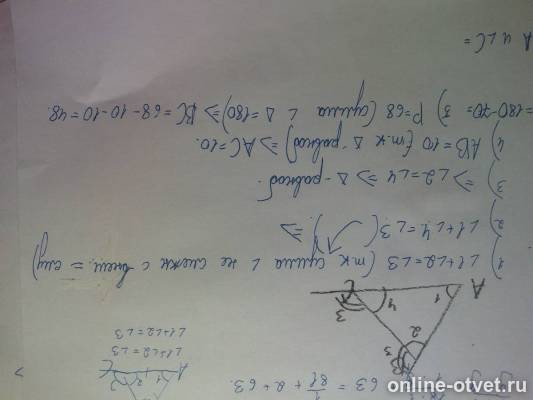 = 63 = 81 + 2 + 63.
A
1
4
2
3
3
∠1+∠2=∠3
∠1+∠2=∠3
1) ∠1+∠2=∠3 (т.к сумма ∠ не смежн с внеш = ему)
2) ∠1+∠4=∠3 ( ) =>
3) => ∠2=∠4 => Δ - равноб.
4) AB=10 (т.к Δ - равноб) => AC=10.
5) P=68 (сумма ∠ Δ=180) => BC=68-10-10=48.
=180-70=
A и ∠C=
online-otvet.ru